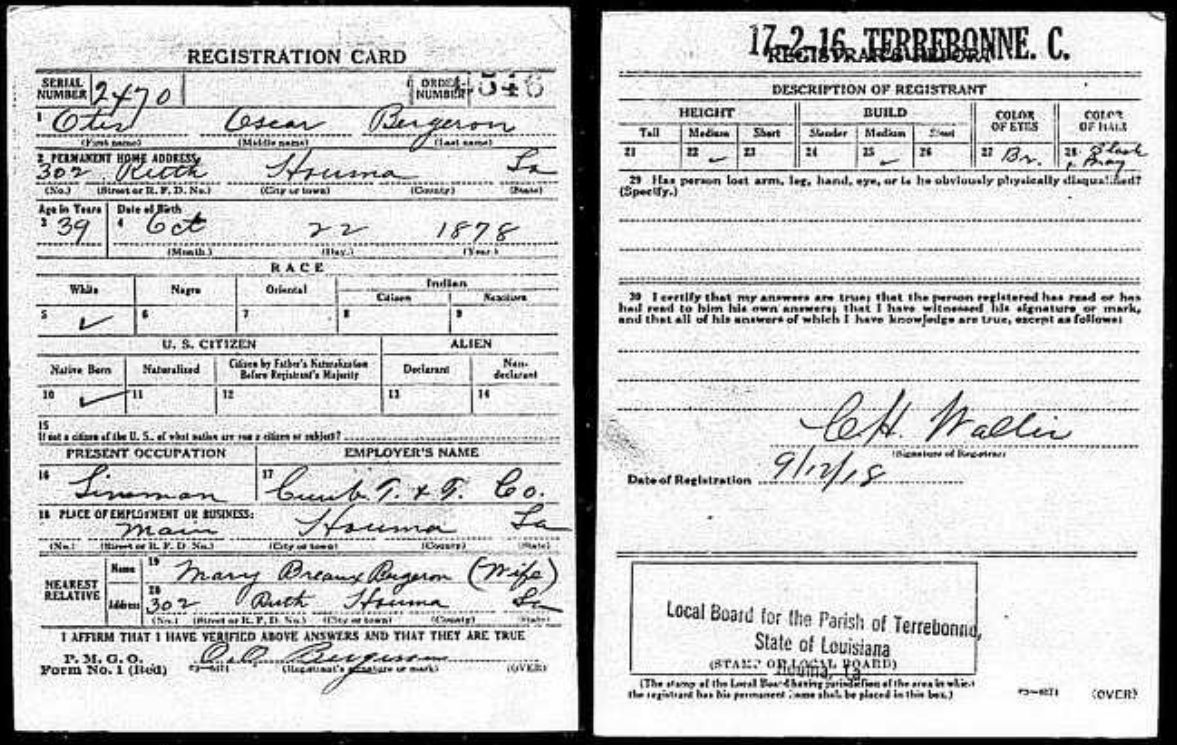 REGISTRATION CARD
SERIAL NUMBER 2470 ORDER NUMBER 546
1 Otis Oscar Bergeron
(First name) (Middle name) (Last name)
2 PERMANENT HOME ADDRESS
302 Ruth Houma La
(No.) (Street or R. F. D. No.) (City or town) (County) (State)
Age in Years Date of Birth
3 39 4 Oct 22 1878
(Month.) (Day.) (Year.)
RACE
White Negro Oriental Indian
Citizen Noncitizen
5 ✓ 6 7 8 9
U. S. CITIZEN ALIEN
Native Born Naturalized Citizen by Father's Naturalization Before Registrant's Majority Declarant Non-declarant
10 ✓ 11 12 13 14
15
If not a citizen of the U. S., of what nation are you a citizen or subject?
PRESENT OCCUPATION EMPLOYER'S NAME
16 Lineman 17 Cumb. T. & T. Co.
18 PLACE OF EMPLOYMENT OR BUSINESS:
Main Houma La
(No.) (Street or R. F. D. No.) (City or town) (County) (State)
NEAREST RELATIVE Name 19 Mary Breaux Bergeron (Wife)
Address 20 302 Ruth Houma La
(No.) (Street or R. F. D. No.) (City or town) (County) (State)
I AFFIRM THAT I HAVE VERIFIED ABOVE ANSWERS AND THAT THEY ARE TRUE
P. M. G. O.
Form No. 1 (Red) O.O. Bergeron (OVER)
(Registrant's signature or mark)
17-2-16 TERREBONNE. C.
REGISTRAR'S REPORT
DESCRIPTION OF REGISTRANT
HEIGHT BUILD COLOR OF EYES COLOR OF HAIR
Tall Medium Short Slender Medium Stout
21 22 ✓ 23 24 25 ✓ 26 27 Br. 28 Black & Gray
29 Has person lost arm, leg, hand, eye, or is he obviously physically disqualified?
(Specify.)
30 I certify that my answers are true; that the person registered has read or has
had read to him his own answers; that I have witnessed his signature or mark,
and that all of his answers of which I have knowledge are true, except as follows:
C.H. Wallis
(Signature of Registrar)
Date of Registration 9/12/18
Local Board for the Parish of Terrebonne,
State of Louisiana
(STAMP OF LOCAL BOARD)
Houma, La.
(The stamp of the Local Board having jurisdiction of the area in which
the registrant has his permanent home shall be placed in this box.)
(OVER)